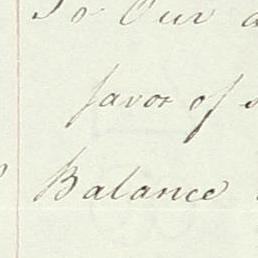 To Our
favor of
Balance